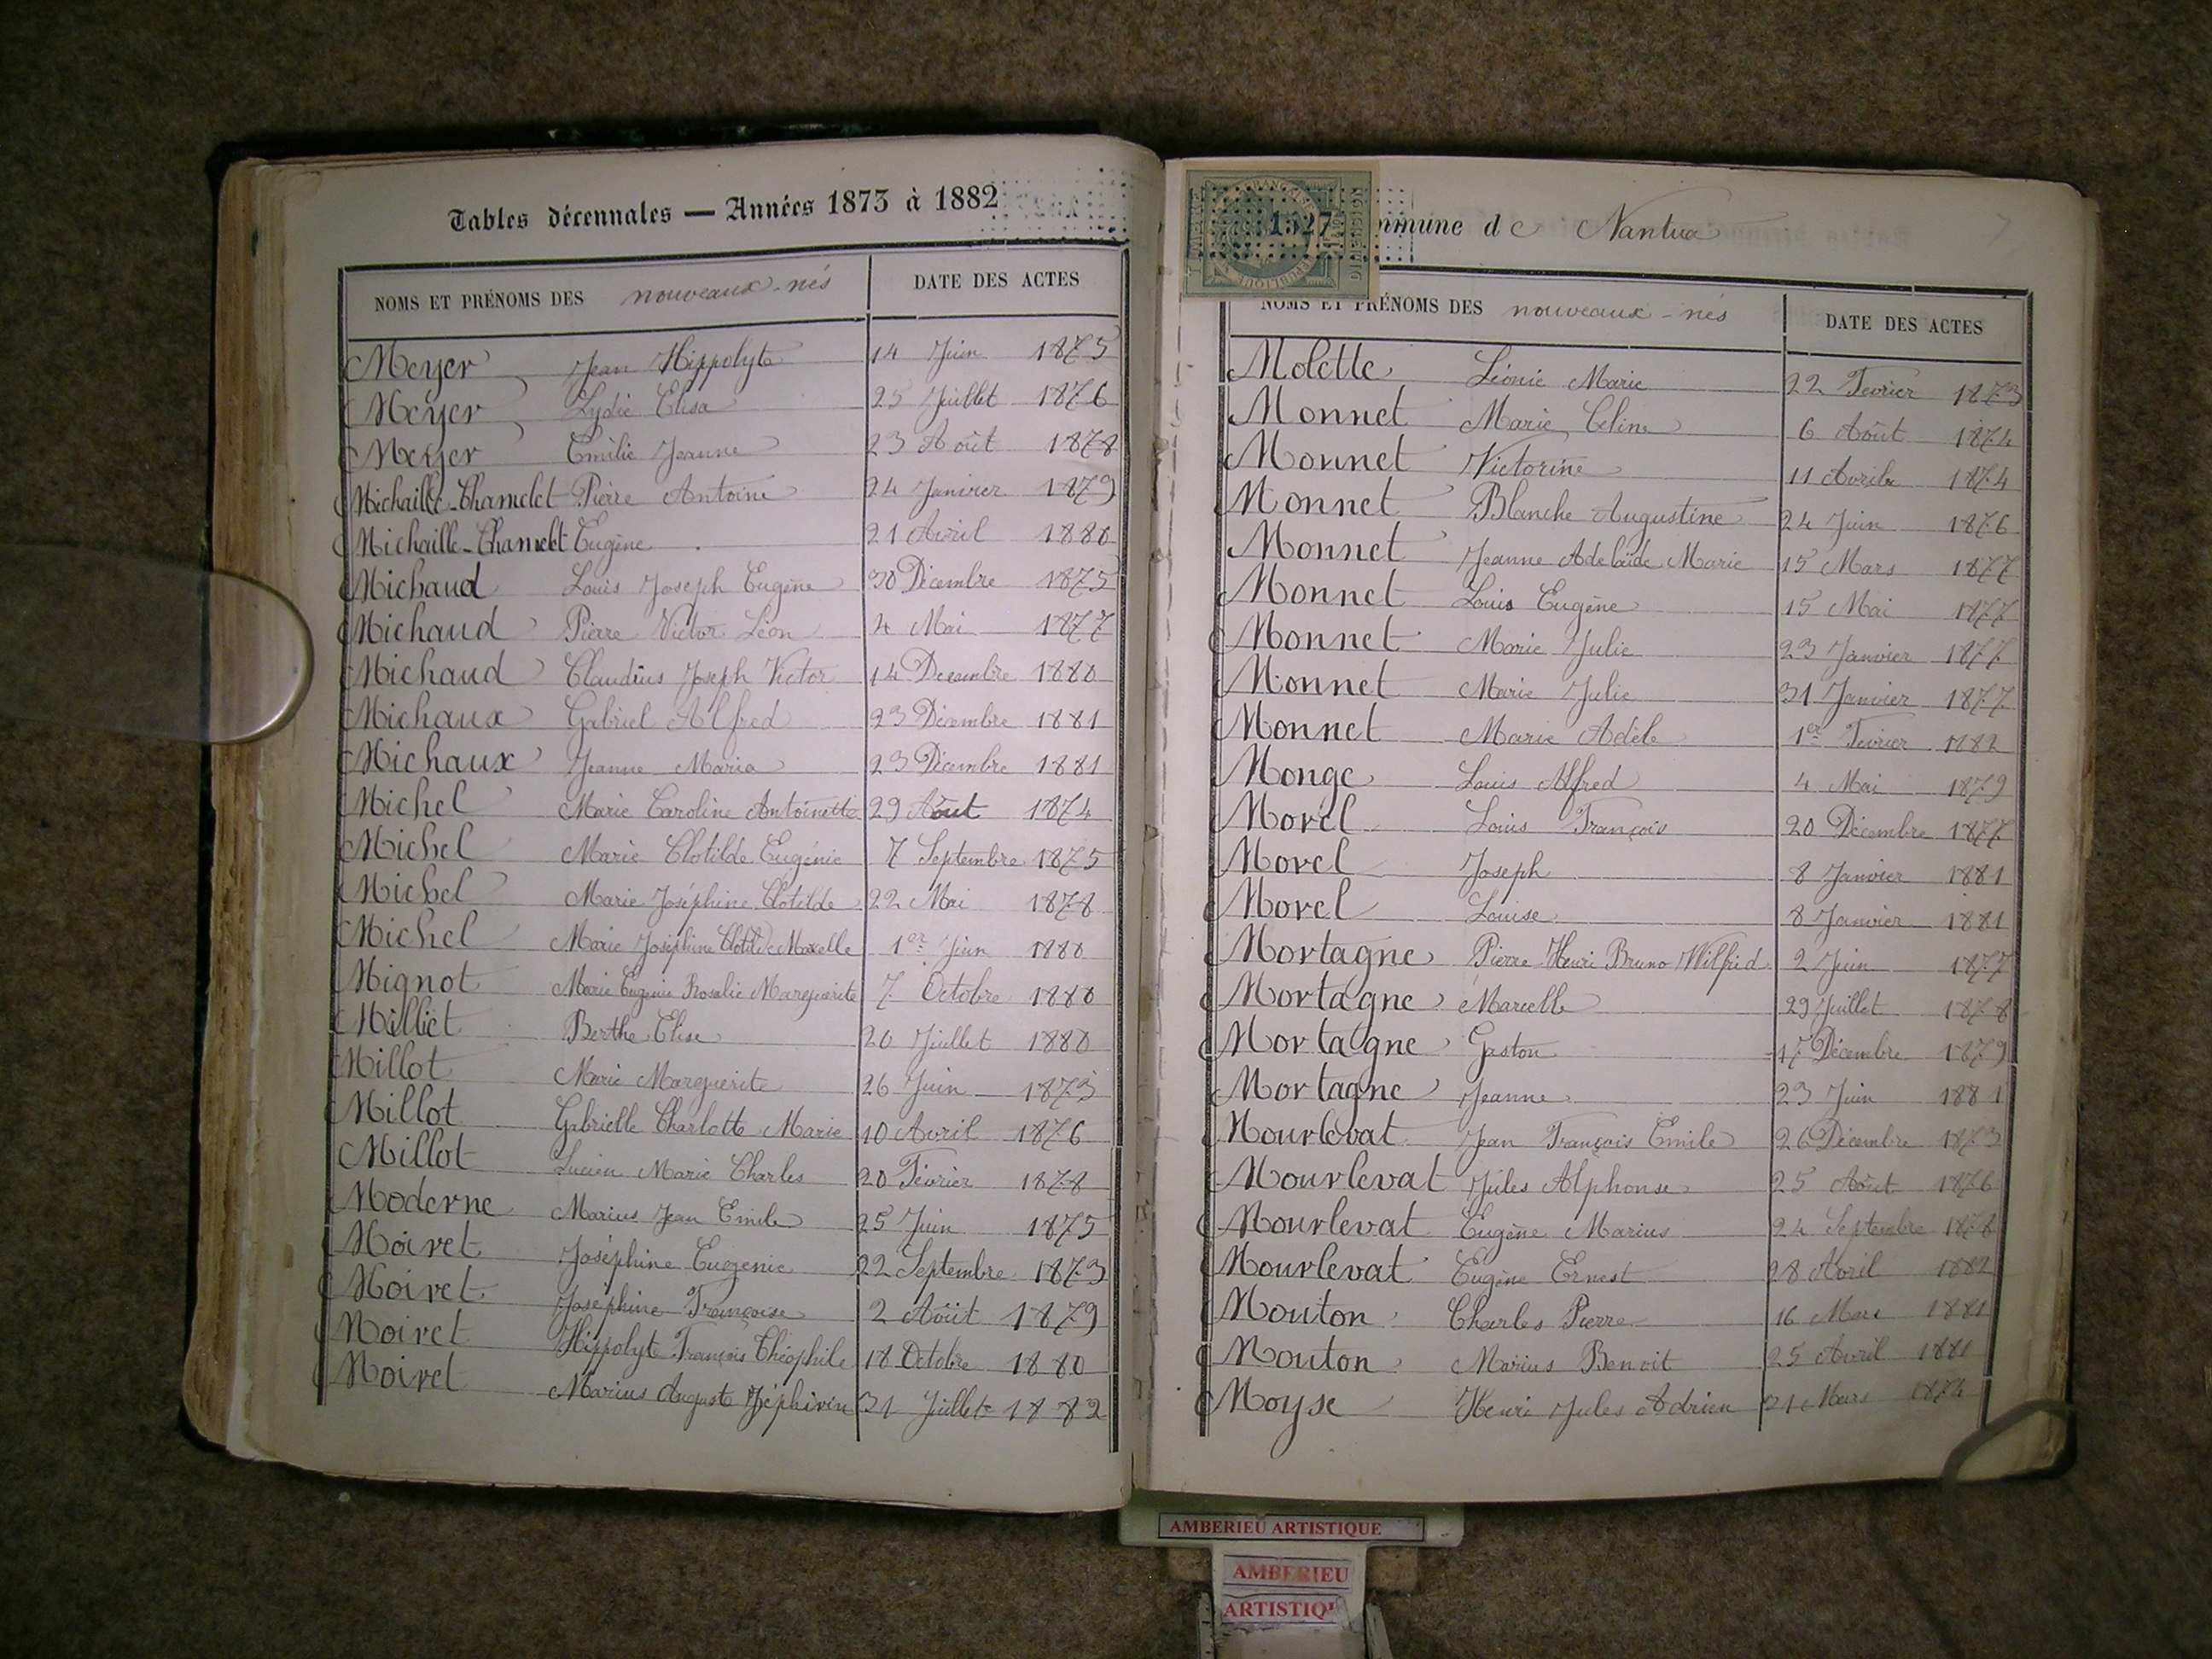 Tables décennales — Années 1873 à 1882
NOMS ET PRÉNOMS DES nouveaux-nés DATE DES ACTES
Meyer Jean Hippolyte 14 Juin 1875
Meyer Lydie Elisa 25 Juillet 1876
Meyer Emilie Jeanne 23 Août 1878
Michaille-Chamelet Pierre Antoine 24 Janvier 1879
Michaille-Chamelet Eugène 21 Avril 1880
Michaud Louis Joseph Eugène 30 Décembre 1875
Michaud Pierre Victor Léon 4 Mai 1877
Michaud Claudius Joseph Victor 14 Decembre 1880
Michaux Gabriel Alfred 23 Décembre 1881
Michaux Jeanne Maria 23 Décembre 1881
Michel Marie Caroline Antoinette 29 Août 1874
Michel Marie Clotilde Eugénie 7 Septembre 1875
Michel Marie Joséphine Clotilde 22 Mai 1878
Michel Marie Joséphine Clotilde 1er Juin 1880
Mignot Marie Eugenie Rosalie Marguerite 7 Octobre 1880
Milliet Berthe Elise 20 Juillet 1880
Millot Marie Marguerite 26 Juin 1873
Millot Gabrielle Charlotte Marie 10 Avril 1876
Millot Lucien Marie Charles 20 Février 1878
Moderne Marius Jean Emile 25 Juin 1875
Moiret Joséphine Eugenie 22 Septembre 1873
Moiret Josephine Françoise 2 Août 1879
Moiret Hippolyte François Théophile 18 Octobre 1880
Moiret Marius Auguste 31 Juillet 1882
1327
mmune de Nantua
NOMS ET PRÉNOMS DES nouveaux-nés DATE DES ACTES
Molette Léonie Marie 22 Fevrier 1873
Monnet Marie Celine 6 Août 1874
Monnet Victorine 11 Avril 1874
Monnet Blanche Augustine 24 Juin 1876
Monnet Jeanne Adelaïde Marie 15 Mars 1877
Monnet Louis Eugène 15 Mai 1877
Monnet Marie Julie 23 Janvier 1877
Monnet Marie Julie 31 Janvier 1877
Monnet Marie Adèle 1er Fevrier 1882
Monge Louis Alfred 4 Mai 1879
Morel Louis François 20 Décembre 1877
Morel Joseph 8 Janvier 1881
Morel Louise 8 Janvier 1881
Mortagne Pierre Henri Bruno Wilfrid 2 Juin 1877
Mortagne Marcelle 29 Juillet 1878
Mortagne Gaston 17 Décembre 1879
Mortagne Jeanne 23 Juin 1881
Mourlevat Jean François Emile 26 Décembre 1873
Mourlevat Jules Alphonse 25 Août 1876
Mourlevat Eugène Marius 24 Septembre 1878
Mourlevat Eugène Ernest 28 Avril 1882
Mouton Charles Pierre 16 Mars 1881
Mouton Marius Benoit 25 Avril 1881
Moyse Henri Jules Adrien 21 Mars 1874
AMBERIEU ARTISTIQUE
AMBERIEU
ARTISTIQU